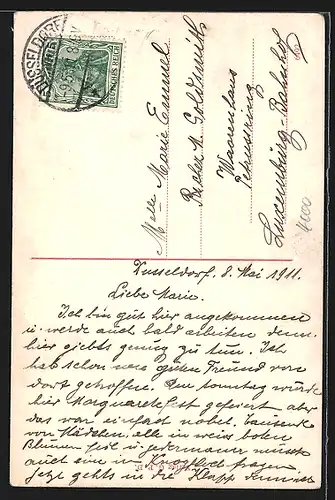 DÜSSELDORF
9.5.
DEUTSCHES REICH
Melle Marie Emmel
Probex u. Goldsmith
Warenhaus
Petrusring
Luxemburg-Bahnhof
4000
Dusseldorf, 8. Mai 1911.
Liebe Marie.
Ich bin gut hier angekommen
u. werde auch bald arbeiten denn
hier giebts genug zu tun. Ich
hab schon guten Freund von
dort getroffen. Den Sonntag wurde
hier Margaretefest gefeiert aber
das war einfach nobel. Tausende
von Mädchen, alle in weiss boten
Blumen feil u. jedermann musste
auch eine im Knopfloch tragen.
Jetzt gehts in die Klapp